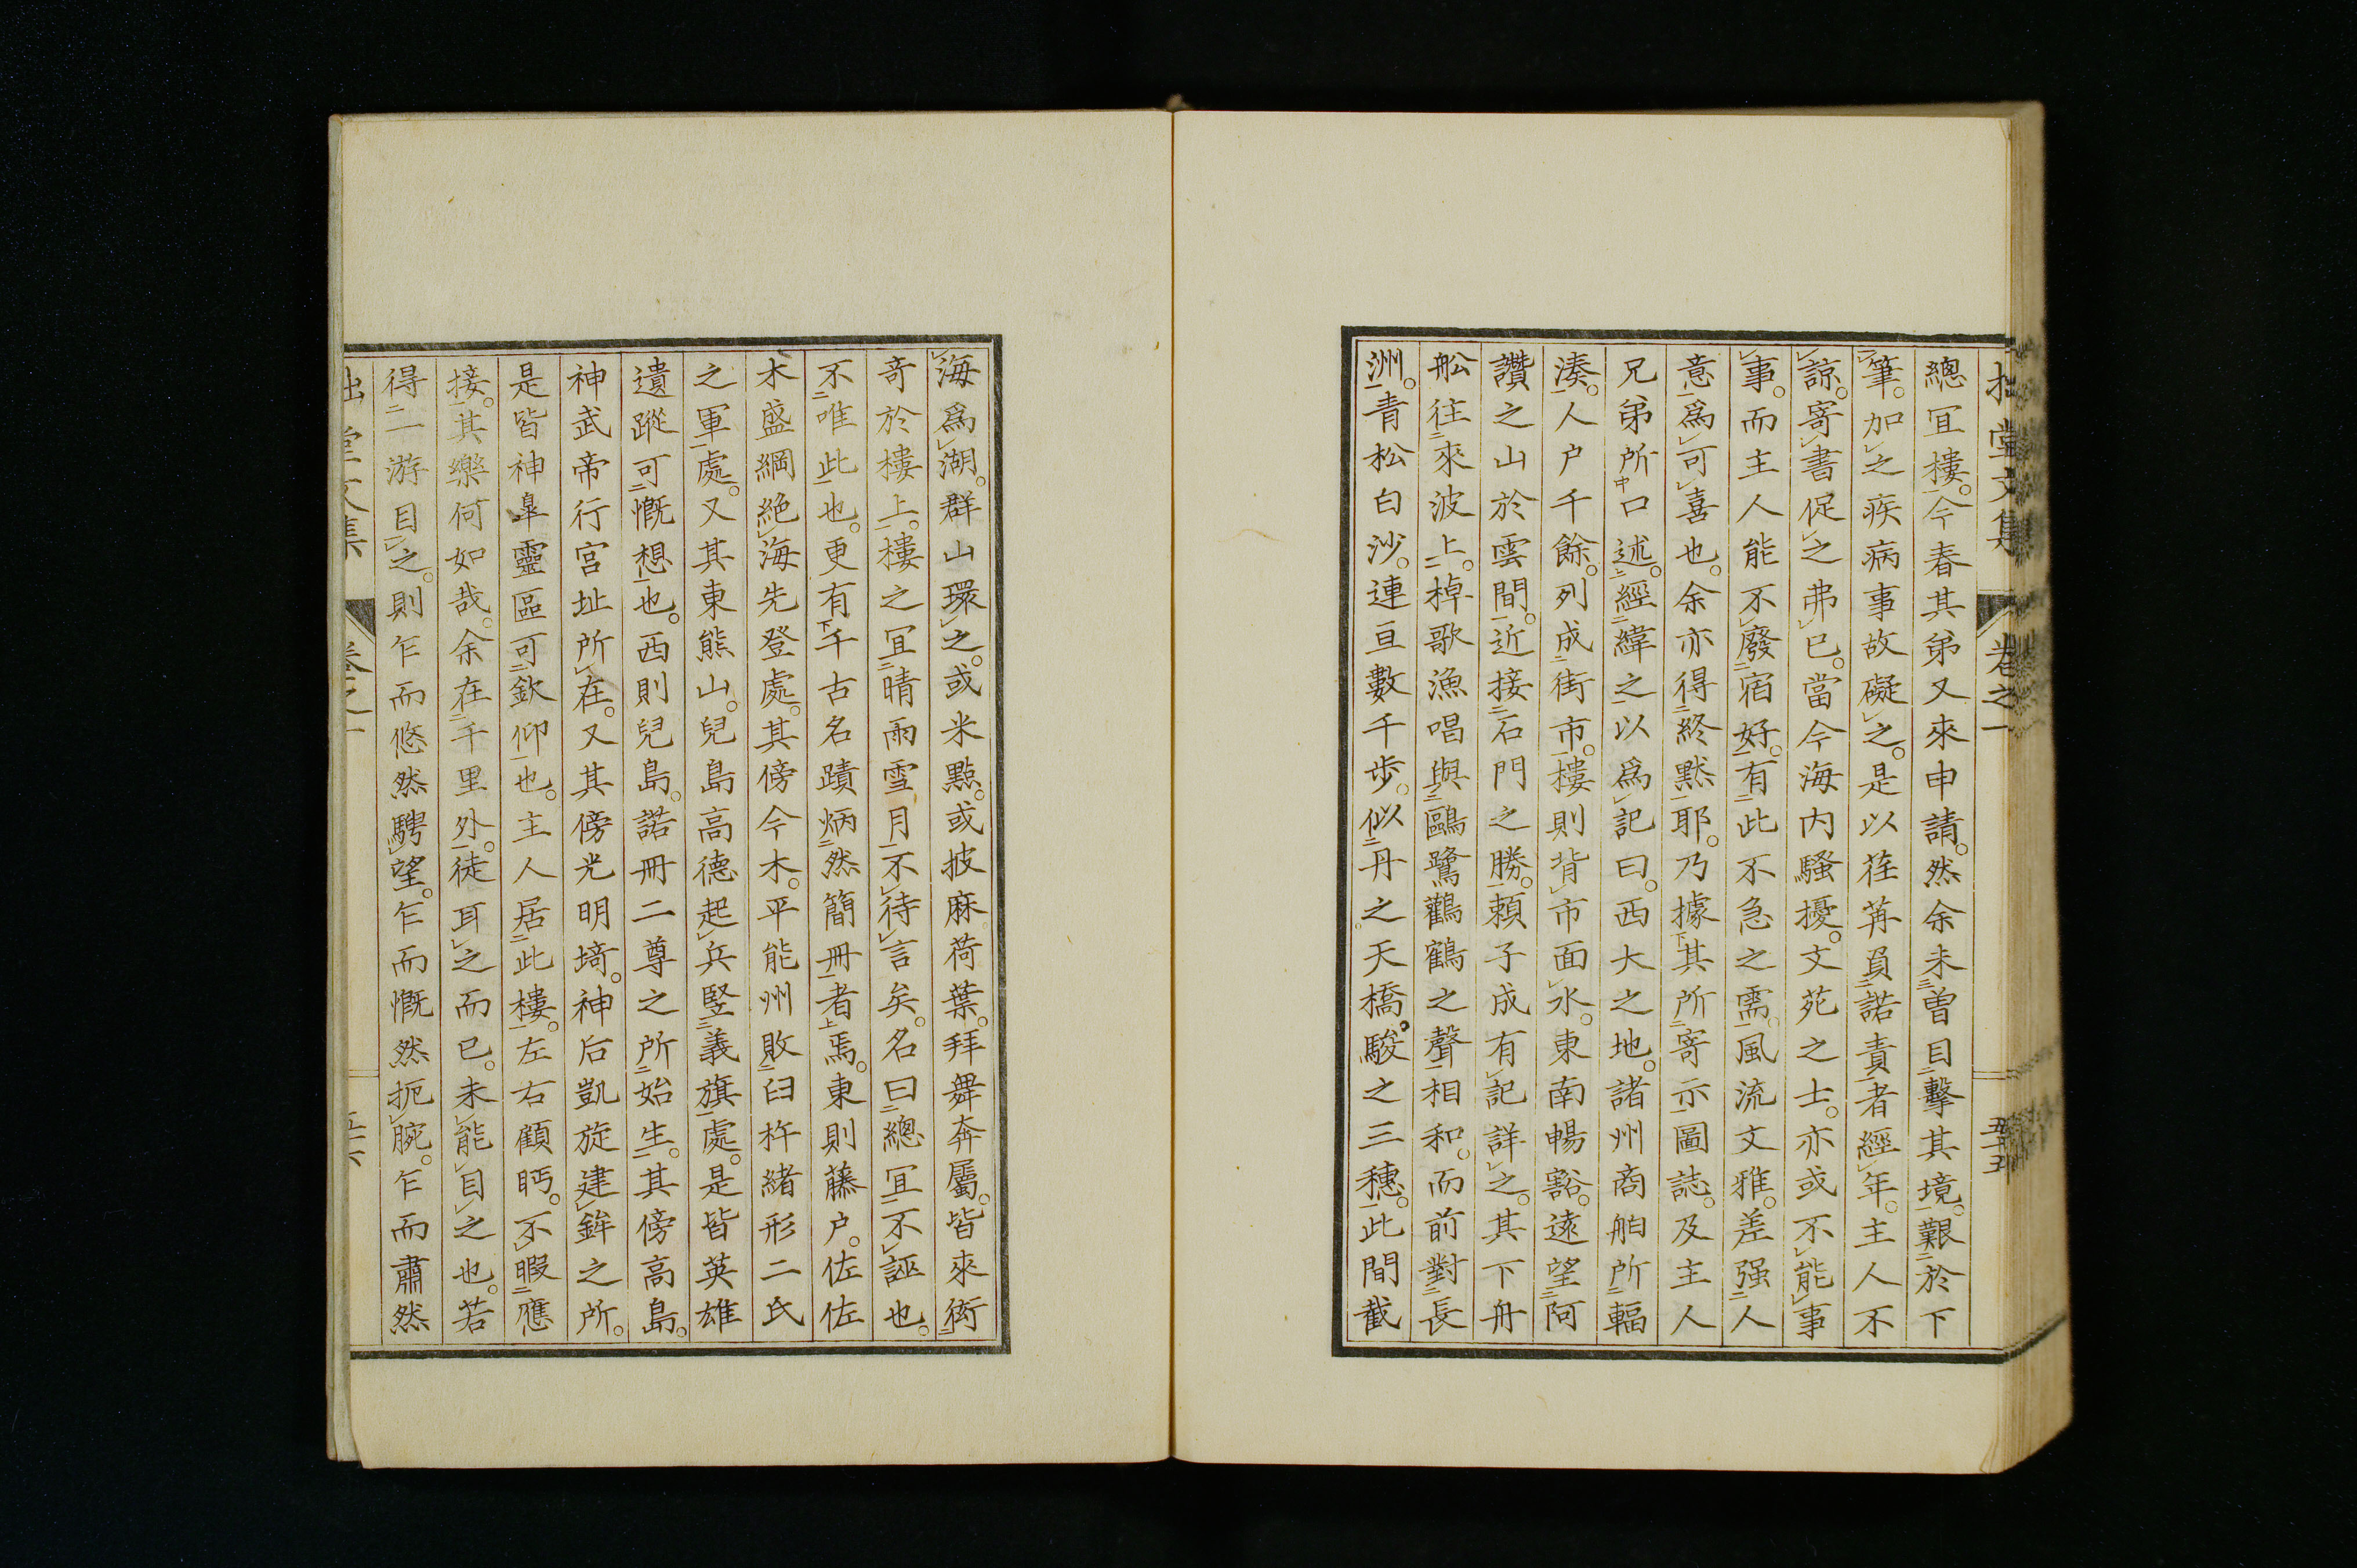 總宜樓。今春其弟又來申請。然余未曽目擊其境。艱於下
筆。加之疾病事故礙之。是以荏苒負諾責者經年。主人不
諒。寄書促之弗已。當今海内騷擾。文苑之士。亦或不能事
事。而主人能不廢宿好。有此不急之需。風流文雅。差强人
意。爲可喜也。余亦得終黙耶。乃據其所寄示圖誌。及主人
兄弟所口述。經緯之以爲記曰。西大之地。諸州商舶所輻
湊。人户千餘。列成街市。樓則背市面水。東南暢豁。遠望阿
讚之山於雲間。近接石門之勝。頼子成有記詳之。其下舟
舩往來波上。棹歌漁唱與鷗鷺鸛鶴之聲相和。而前對長
洲。青松白沙。連亘數千歩。似丹之天橋。駿之三穗。此間截
海爲湖。群山環之。或米點。或披麻荷葉。拜舞奔屬。皆來衒
奇於樓上。樓之宜晴雨雪月。不待言矣。名曰總宜。不誣也。
不唯此也。更有千古名蹟炳然簡冊者焉。東則藤户。佐佐
木盛綱絶海先登處。其傍今木。平能州敗臼杵緒形二氏
之軍處。又其東熊山。兒島高德起兵竪義旗處。是皆英雄
遺蹤可慨想也。西則兒島。諾冊二尊之所始生。其傍高島。
神武帝行宮址所在。又其傍光明埼。神后凱旋建鉾之所。
是皆神皐靈區可欽仰也。主人居此樓。左右顧眄。不暇應
接。其樂何如哉。余在千里外。徒耳之而已。未能目之也。若
得一游目之。則乍而悠然騁望。乍而慨然扼腕。乍而肅然
拙堂文集
卷之一
五十五